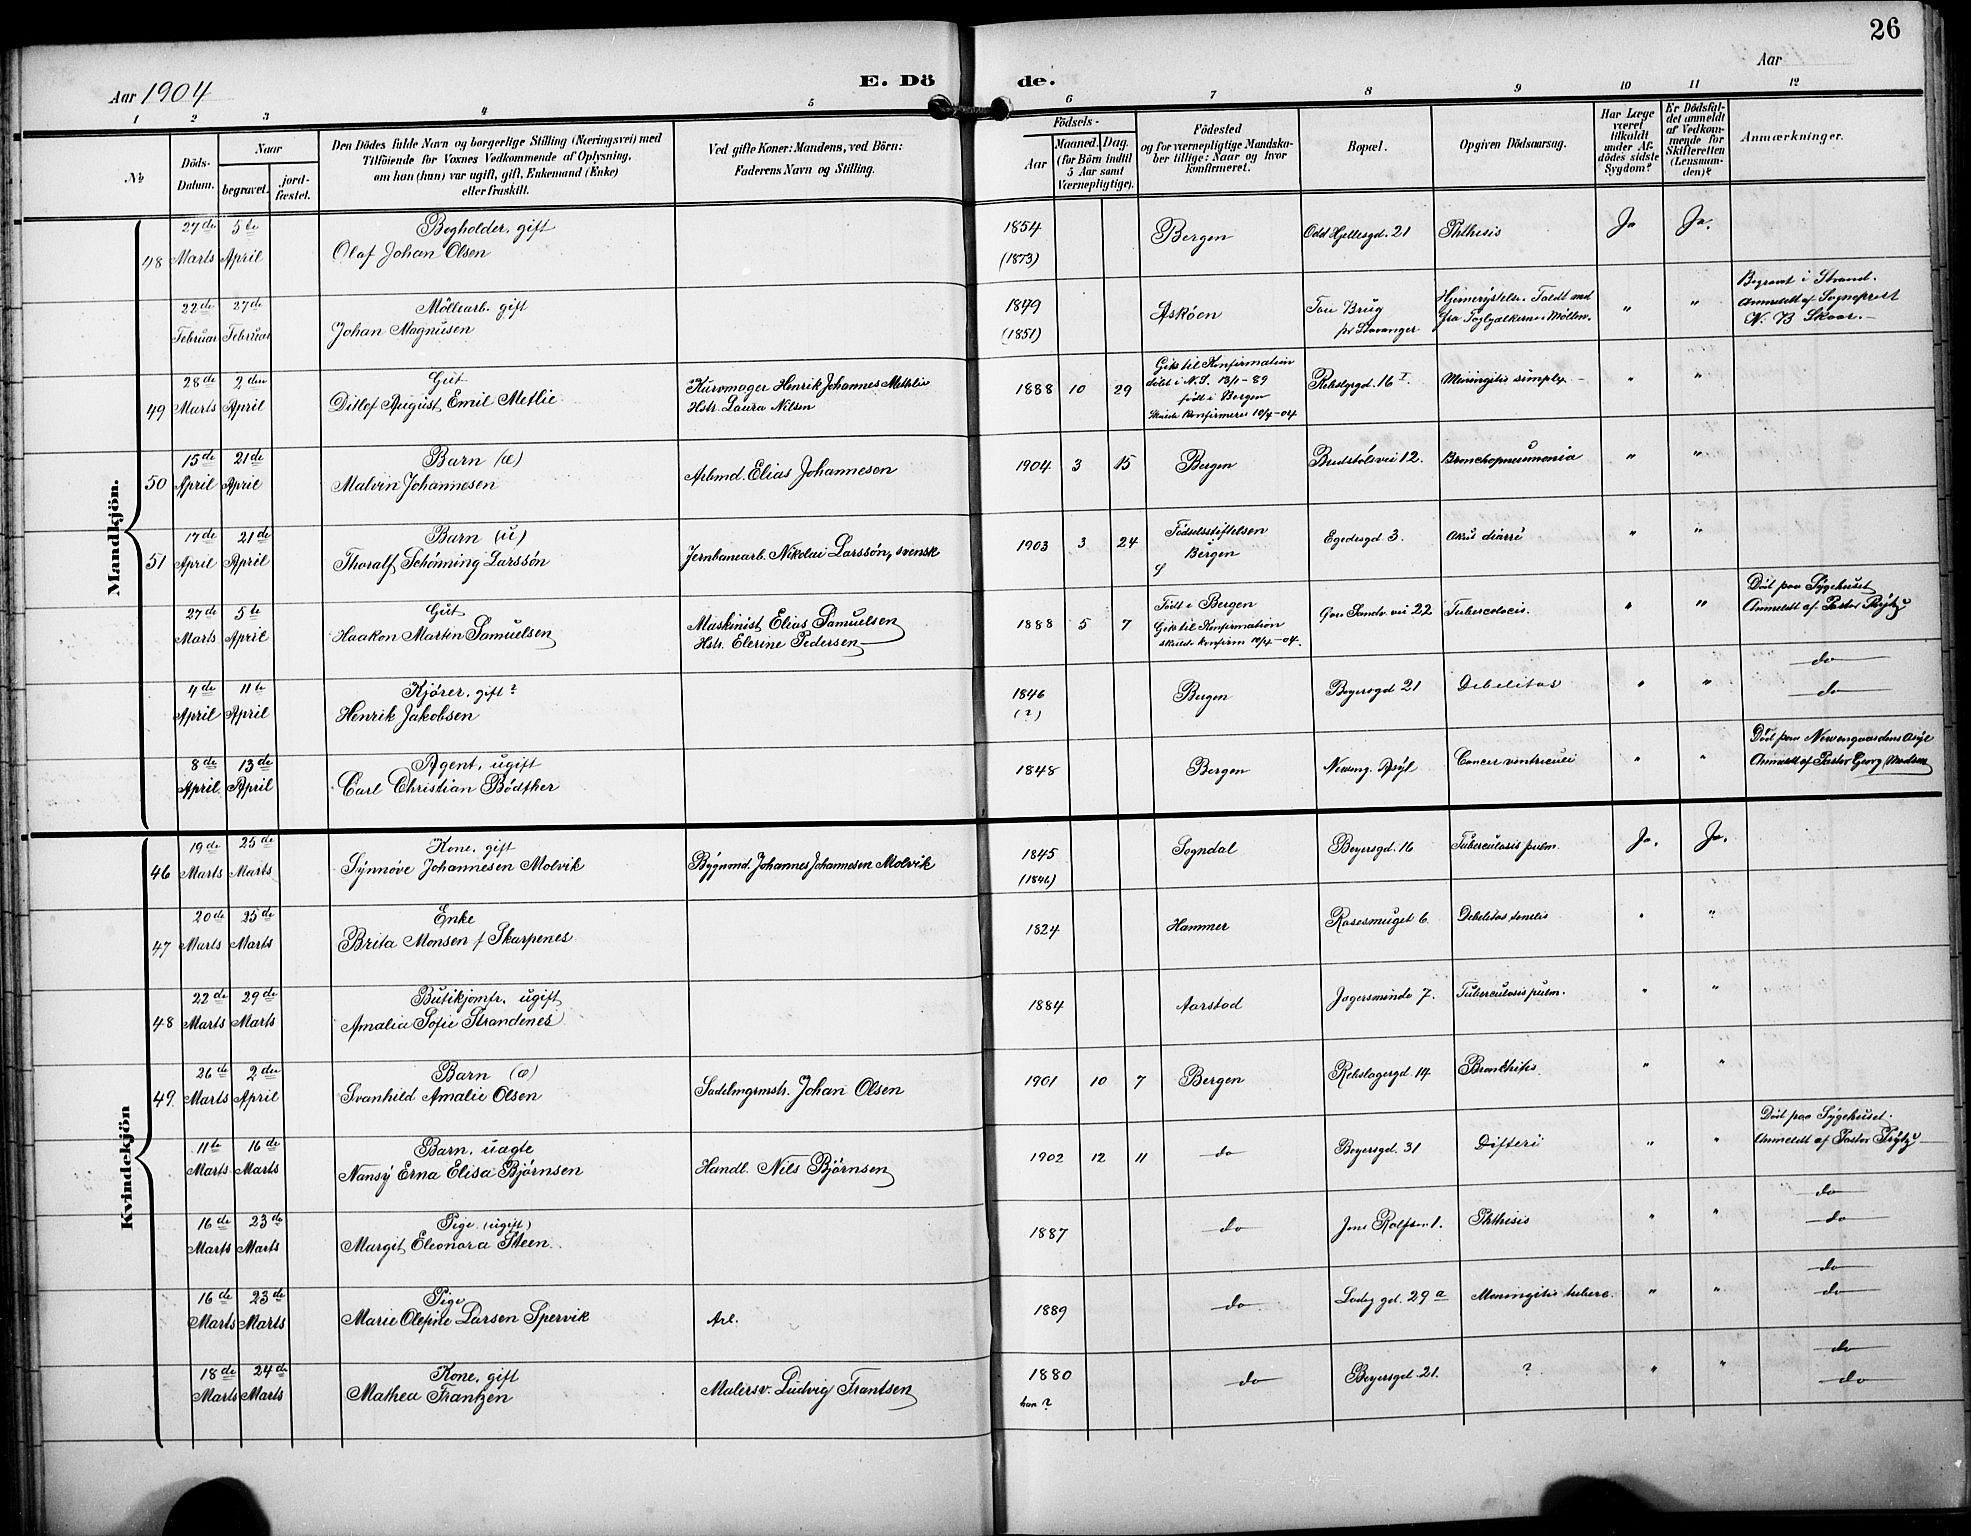 26
Aar 1904
E. Dö de.
Aar
1 2 3 4 5 6 7 8 9 10 11 12
№
Döds-Datum.
Naar
begravet.
jord-fæstet.
Den Dödes fulde Navn og borgerlige Stilling (Næringsvei) med
Tilföiende for Voxnes Vedkommende af Oplysning,
om han (hun) var ugift, gift, Enkemand (Enke)
eller fraskilt.
Ved gifte Koner: Mandens, ved Börn:
Faderens Navn og Stilling.
Födsels-
Aar
Maaned. Dag.
(for Börn indtil
5 Aar samt
Værnepligtige).
Födested
og for værnepligtige Mandska-
ber tillige: Naar og hvor
konfirmeret.
Bopæl.
Opgiven Dödsaarsag.
Har Læge
været
tilkaldt
under Af-
dödes sidste
Sygdom?
Er Dödsfal-
det anmeldt
af Vedkom-
mende for
Skifteretten
(Lensman-
den)?
Anmærkninger.
Mandkjön.
27de 5te Bogholder, gift 1854 Bergen Odd Hjeltesgd. 21 Phthisis Ja Ja.
48 Marts April Olaf Johan Olsen (1873)
22de 27de Möllearb. gift 1849 Askøen Tou Brug
Februar Februar Johan Magnusen (1851) pr Stavanger
Begravet i Strand.
Anmeldt af Sogneprest
N. B Skaar.
28de 2den Gut Kurvmager Henrik Johannes Methlie 1888 10 29
49 Marts April Ditlof August Emil Metlie Hstr. Laura Nilsen
Gik til Konfirmation
døbt i N.S. 13/1-89
født i Bergen
Skulde Konfirmeres 10/4-04
16 I. Meningitis simplex " "
15de 21de Barn (æ) Arbmd. Elias Johannesen 1904 3 15 Bergen 12. Bronchopneumonia " "
50 April April Malvin Johannesen
17de 21de Barn (u) Jernbanearb. Nikolai Larssön, svensk 1903 3 24 Födselsstiftelsen Egedesgd 3. diarré " "
51 April April Thoralf Schönning Larssön Bergen
27de 5te Gut Maskinist Elias Samuelsen 1888 5 7 Født i Bergen vei 22 " "
Marts April Haakon Martin Samuelsen Hstr. Elerine Pedersen
Gik til Konfirmation
skulde konfirm 10/4-04.
Död paa Sygehuset
Anmeldt af Pastor Prytz
do
4de 11te Kjører, gift? 1846 Bergen Beyersgd 21 Debelitas " " do
April April Henrik Jakobsen (?)
8de 13de Agent, ugift 1848 Bergen Neveng. Asyl Cancer ventriculi " "
April April Carl Christian Bödtker
Död paa Nevengaardens Asyl
Anmeldt af Pastor Georg Madsen
Kvindekjön
19de 25de Kone, gift Bygnmd. Johannes Johannesen Molvik 1845 Sogndal Beyersgd. 16 Tuberculosis pulm. Ja. Ja.
46 Marts Marts Synnöve Johannesen Molvik (1846)
20de 25de Enke 1824 Hammer Rosesmuget 6. Debelitas senelis " "
47 Marts Marts Brita Monsen f Skarpenes
22de 29de Butikjomfr. ugift 1884 Aarstad Jægersminde 7. Tuberculosis pulm. " "
48 Marts Marts Amalia Sofie Strandenes
26de 2den Barn (æ) Sadelmgrmstr. Johan Olsen 1901 10 7 Bergen Rebslagergd. 14 Bronkhitis " "
49. Marts April Svanhild Amalie Olsen
11te 16de Barn, uægte Handl. Nils Bjørnsen 1902 12 11 do Beyersgd. 31 Difteri " "
Marts Marts Nansy Erna Elisa Bjørnsen
Död paa Sygehuset.
Anmeldt af Pastor Prytz
do
16de 23de Pige (ugift) 1887 do Jens Rolfsen 1. Phthisis " " do
Marts Marts Margit Eleonora Steen
do
16de 23de Pige 1889 do Ladeg gd. 29a Meningitis tuberc. " " do
Marts Marts Marie Olefine Larsen Spervik Arb.
do
18de 24de Kone, gift Malersv. Ludvig Frantsen 1880 do Beyersgd 21. ? " " do
Marts Marts Mathea Frantzen